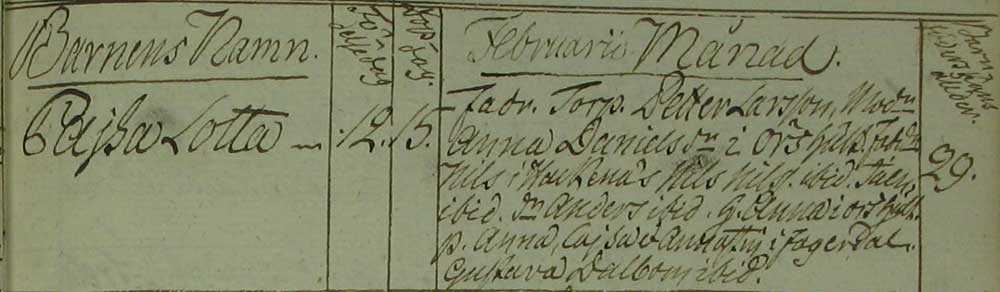 Barnens Namn.
Födelsedag
Dopdag.
Februarii Månad.
Barnaföderskans ålder.
Cajsa Lotta
12.
15.
Fadr. Torp. Petter Larsson, Modn
Anna Danielsdn i
Nils i Nils Nils. ibid.
ibid. dn Anders ibid. H. Anna i
p. Anna, Cajsa & Anna i Fagerdal.
Gustava Dalbom ibid.
29.